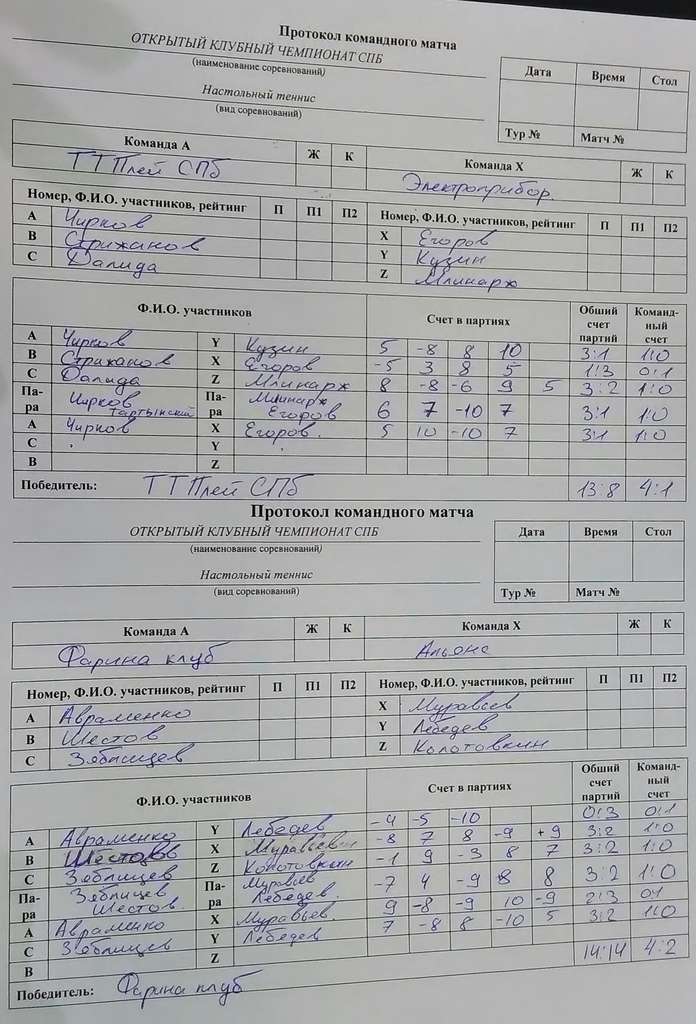 Протокол командного матча
ОТКРЫТЫЙ КЛУБНЫЙ ЧЕМПИОНАТ СПБ
(наименование соревнований)
Настольный теннис
(вид соревнований)
Дата Время Стол
Тур № Матч №
Команда А Ж К Команда Х Ж К
ТТ Плей СПб Электроприбор.
Номер, Ф.И.О. участников, рейтинг П П1 П2 Номер, Ф.И.О. участников, рейтинг П П1 П2
А Чирков X Егоров
В Стрижанов Y Кузин
С Далида Z Млинарж
Ф.И.О. участников Счет в партиях Общий счет партий Команд-ный счет
А Чирков Y Кузин 5 -8 8 10 3:1 1:0
В Стрижанов X Егоров -5 3 8 5 1:3 0:1
С Далида Z Млинарж 8 -8 -6 9 5 3:2 1:0
Па-ра Чирков Тартынский Па-ра Млинарж Егоров 6 7 -10 7 3:1 1:0
А Чирков X Егоров. 5 10 -10 7 3:1 1:0
С Y
В Z
Победитель: ТТ Плей СПб 13:8 4:1
Протокол командного матча
ОТКРЫТЫЙ КЛУБНЫЙ ЧЕМПИОНАТ СПБ
(наименование соревнований)
Настольный теннис
(вид соревнований)
Дата Время Стол
Тур № Матч №
Команда А Ж К Команда Х Ж К
Фарина клуб Альянс
Номер, Ф.И.О. участников, рейтинг П П1 П2 Номер, Ф.И.О. участников, рейтинг П П1 П2
А Авраменко X Муравьев
В Шестов Y Лебедев
С Зяблицев Z Колотовкин
Ф.И.О. участников Счет в партиях Общий счет партий Команд-ный счет
А Авраменко Y Лебедев -4 -5 -10 0:3 0:1
В Шестов X Муравьев -8 7 8 -9 +9 3:2 1:0
С Зяблицев Z Колотовкин -1 9 -3 8 7 3:2 1:0
Па-ра Зяблицев Шестов Па-ра Муравьев Лебедев. -7 4 -9 8 8 3:2 1:0
А Авраменко X Муравьев 9 -8 -9 10 -9 2:3 0:1
С Зяблицев Y Лебедев 7 -8 8 -10 5 3:2 1:0
В Z
Победитель: Фарина клуб 14:14 4:2